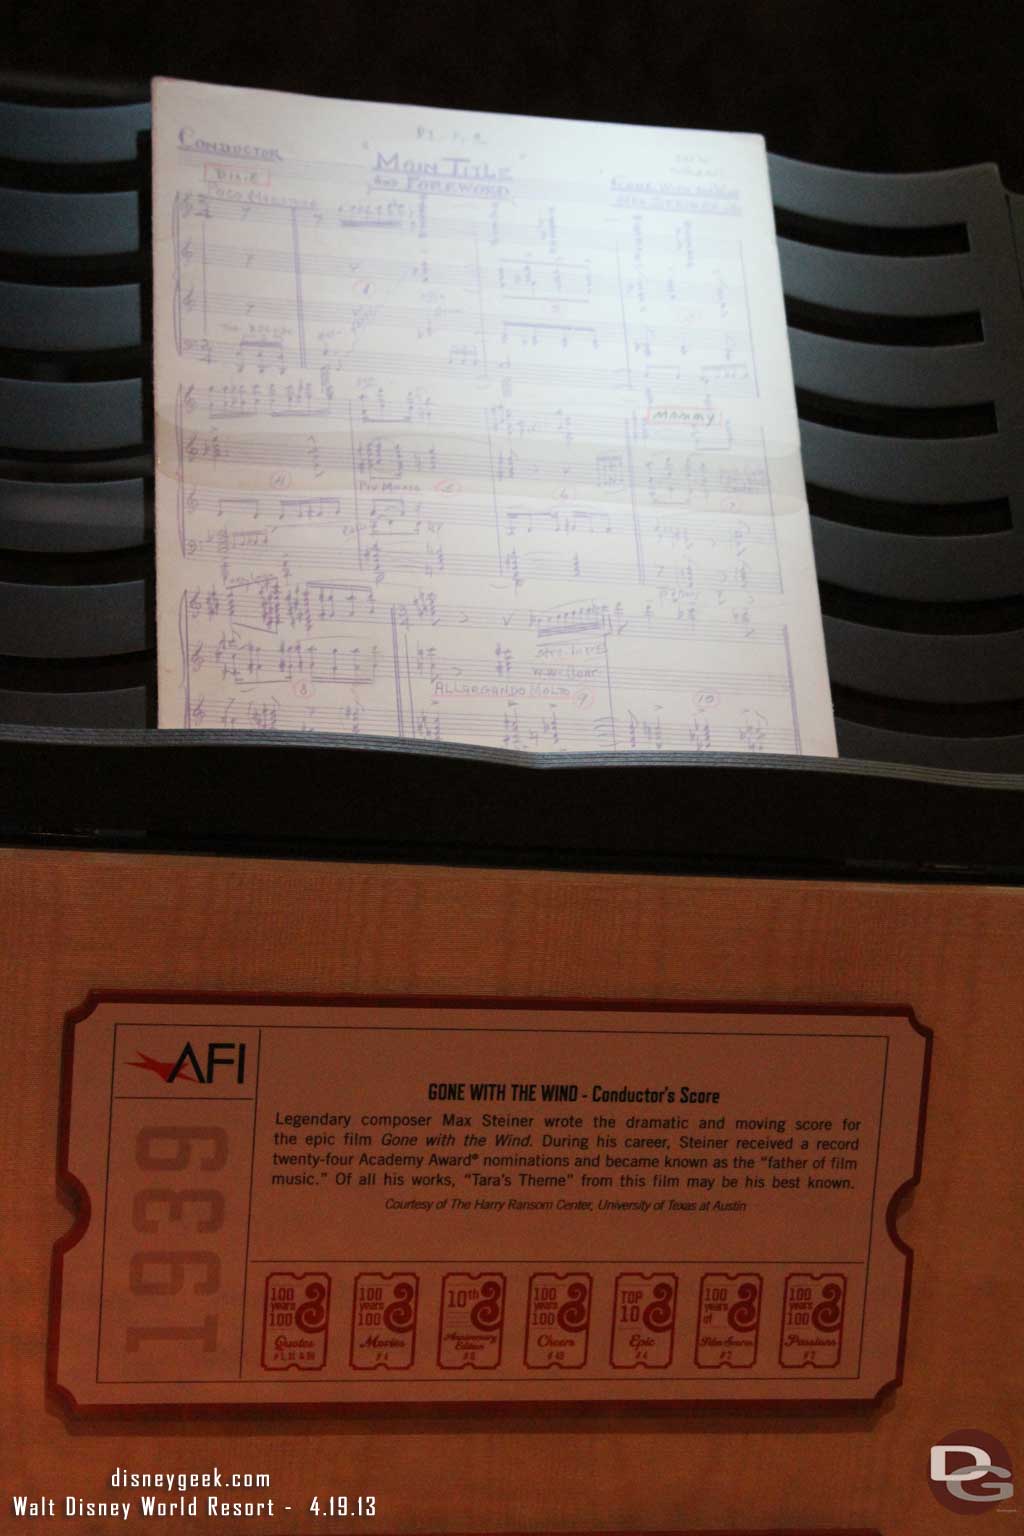 CONDUCTOR
"MAIN TITLE"
AND FOREWORD
DIXIE
GONE WITH THE WIND
MAX STEINER
POCO MAESTOSO
MAMMY
4
PIU MOSSO
5
6
7
8
ALLARGANDO MOLTO
9
10
AFI
1939
GONE WITH THE WIND - Conductor's Score
Legendary composer Max Steiner wrote the dramatic and moving score for
the epic film Gone with the Wind. During his career, Steiner received a record
twenty-four Academy Award® nominations and became known as the "father of film
music." Of all his works, "Tara's Theme" from this film may be his best known.
Courtesy of The Harry Ransom Center, University of Texas at Austin
100 years 100 Quotes
100 years 100 Movies #4
10th Anniversary Edition
100 years 100 Cheers
TOP 10 Epic #4
100 years of Film Scores #2
100 years 100 Passions #2
disneygeek.com
Walt Disney World Resort - 4.19.13
DG